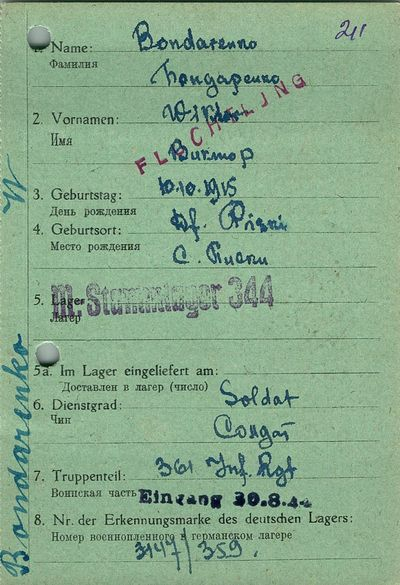 211
1. Name: Bondarenko
Фамилия
Бондаренко
2. Vornamen: Viktor
Имя
Виктор
FLECHELING
3. Geburtstag: 10.10.1915
День рождения
4. Geburtsort: Df.
Место рождения
С.
5. Lager M. Stammlager 344
Лагерь
5a. Im Lager eingeliefert am:
Доставлен в лагерь (число)
6. Dienstgrad: Soldat
Чин Солдат
7. Truppenteil: 361 Inf. Rgt
Воинская часть Eingang 30.8.44
8. Nr. der Erkennungsmarke des deutschen Lagers:
Номер военнопленного в германском лагере
3147/359.
Bondarenko W